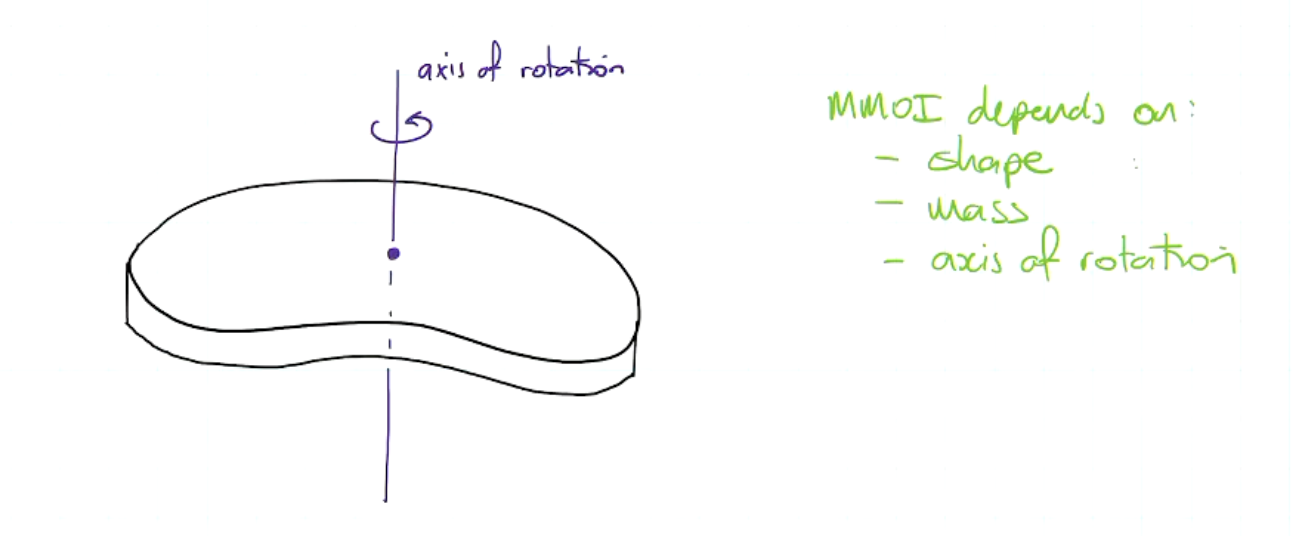 axis of rotation
MMOI depends on:
- shape
- mass
- axis of rotation